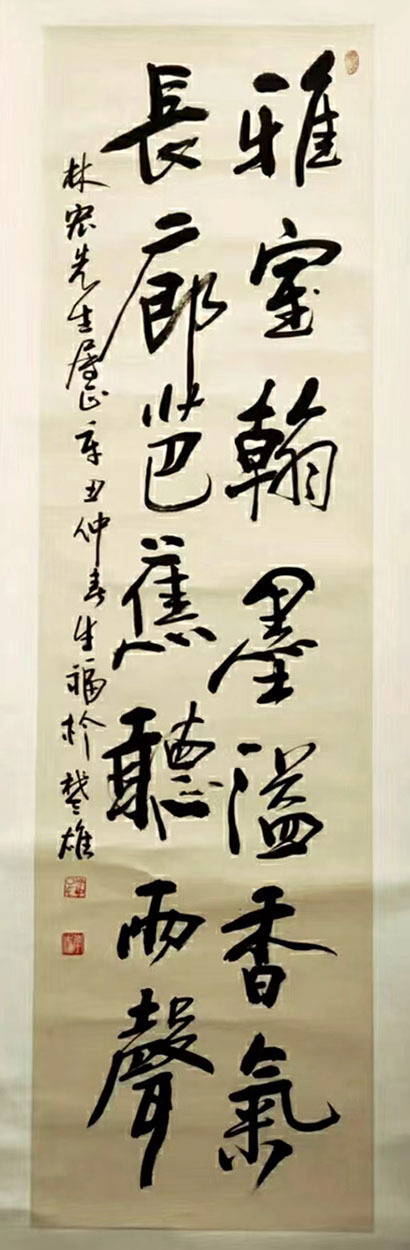 雅室翰墨溢香氣
長廊芭蕉聽雨聲
林宏先生屬正辛丑仲春生福於楚雄